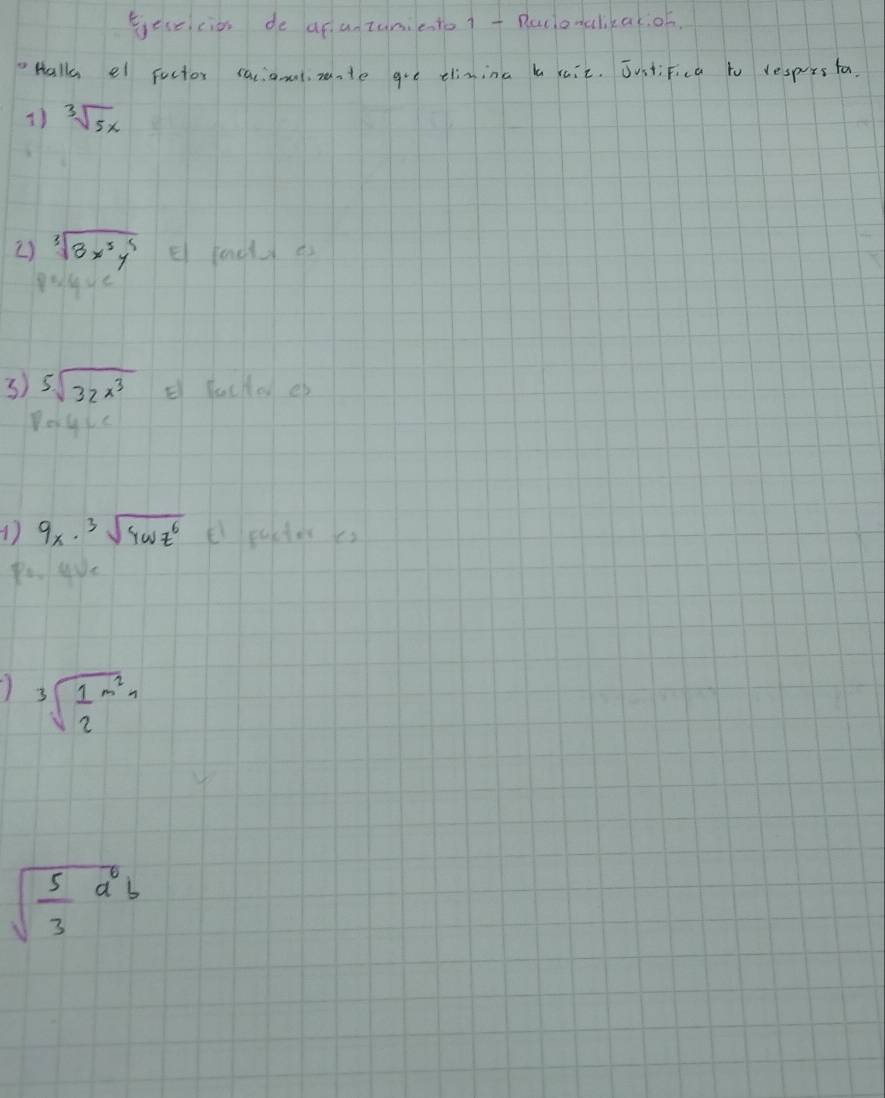 Ejercicios de afianzamiento 1 - Racionalización.
Halla el factor racionalizante que elimina la raíz. Justifica tu respuesta.
1) ³√5x
2) ³√8x⁵y⁵ El factor es
porque
3) ⁵√32x³ El factor es
Porque
1) 9x · ³√4wz⁶ El factor es
Porque
) ³√1/2 m²n
√5/3 a⁶b